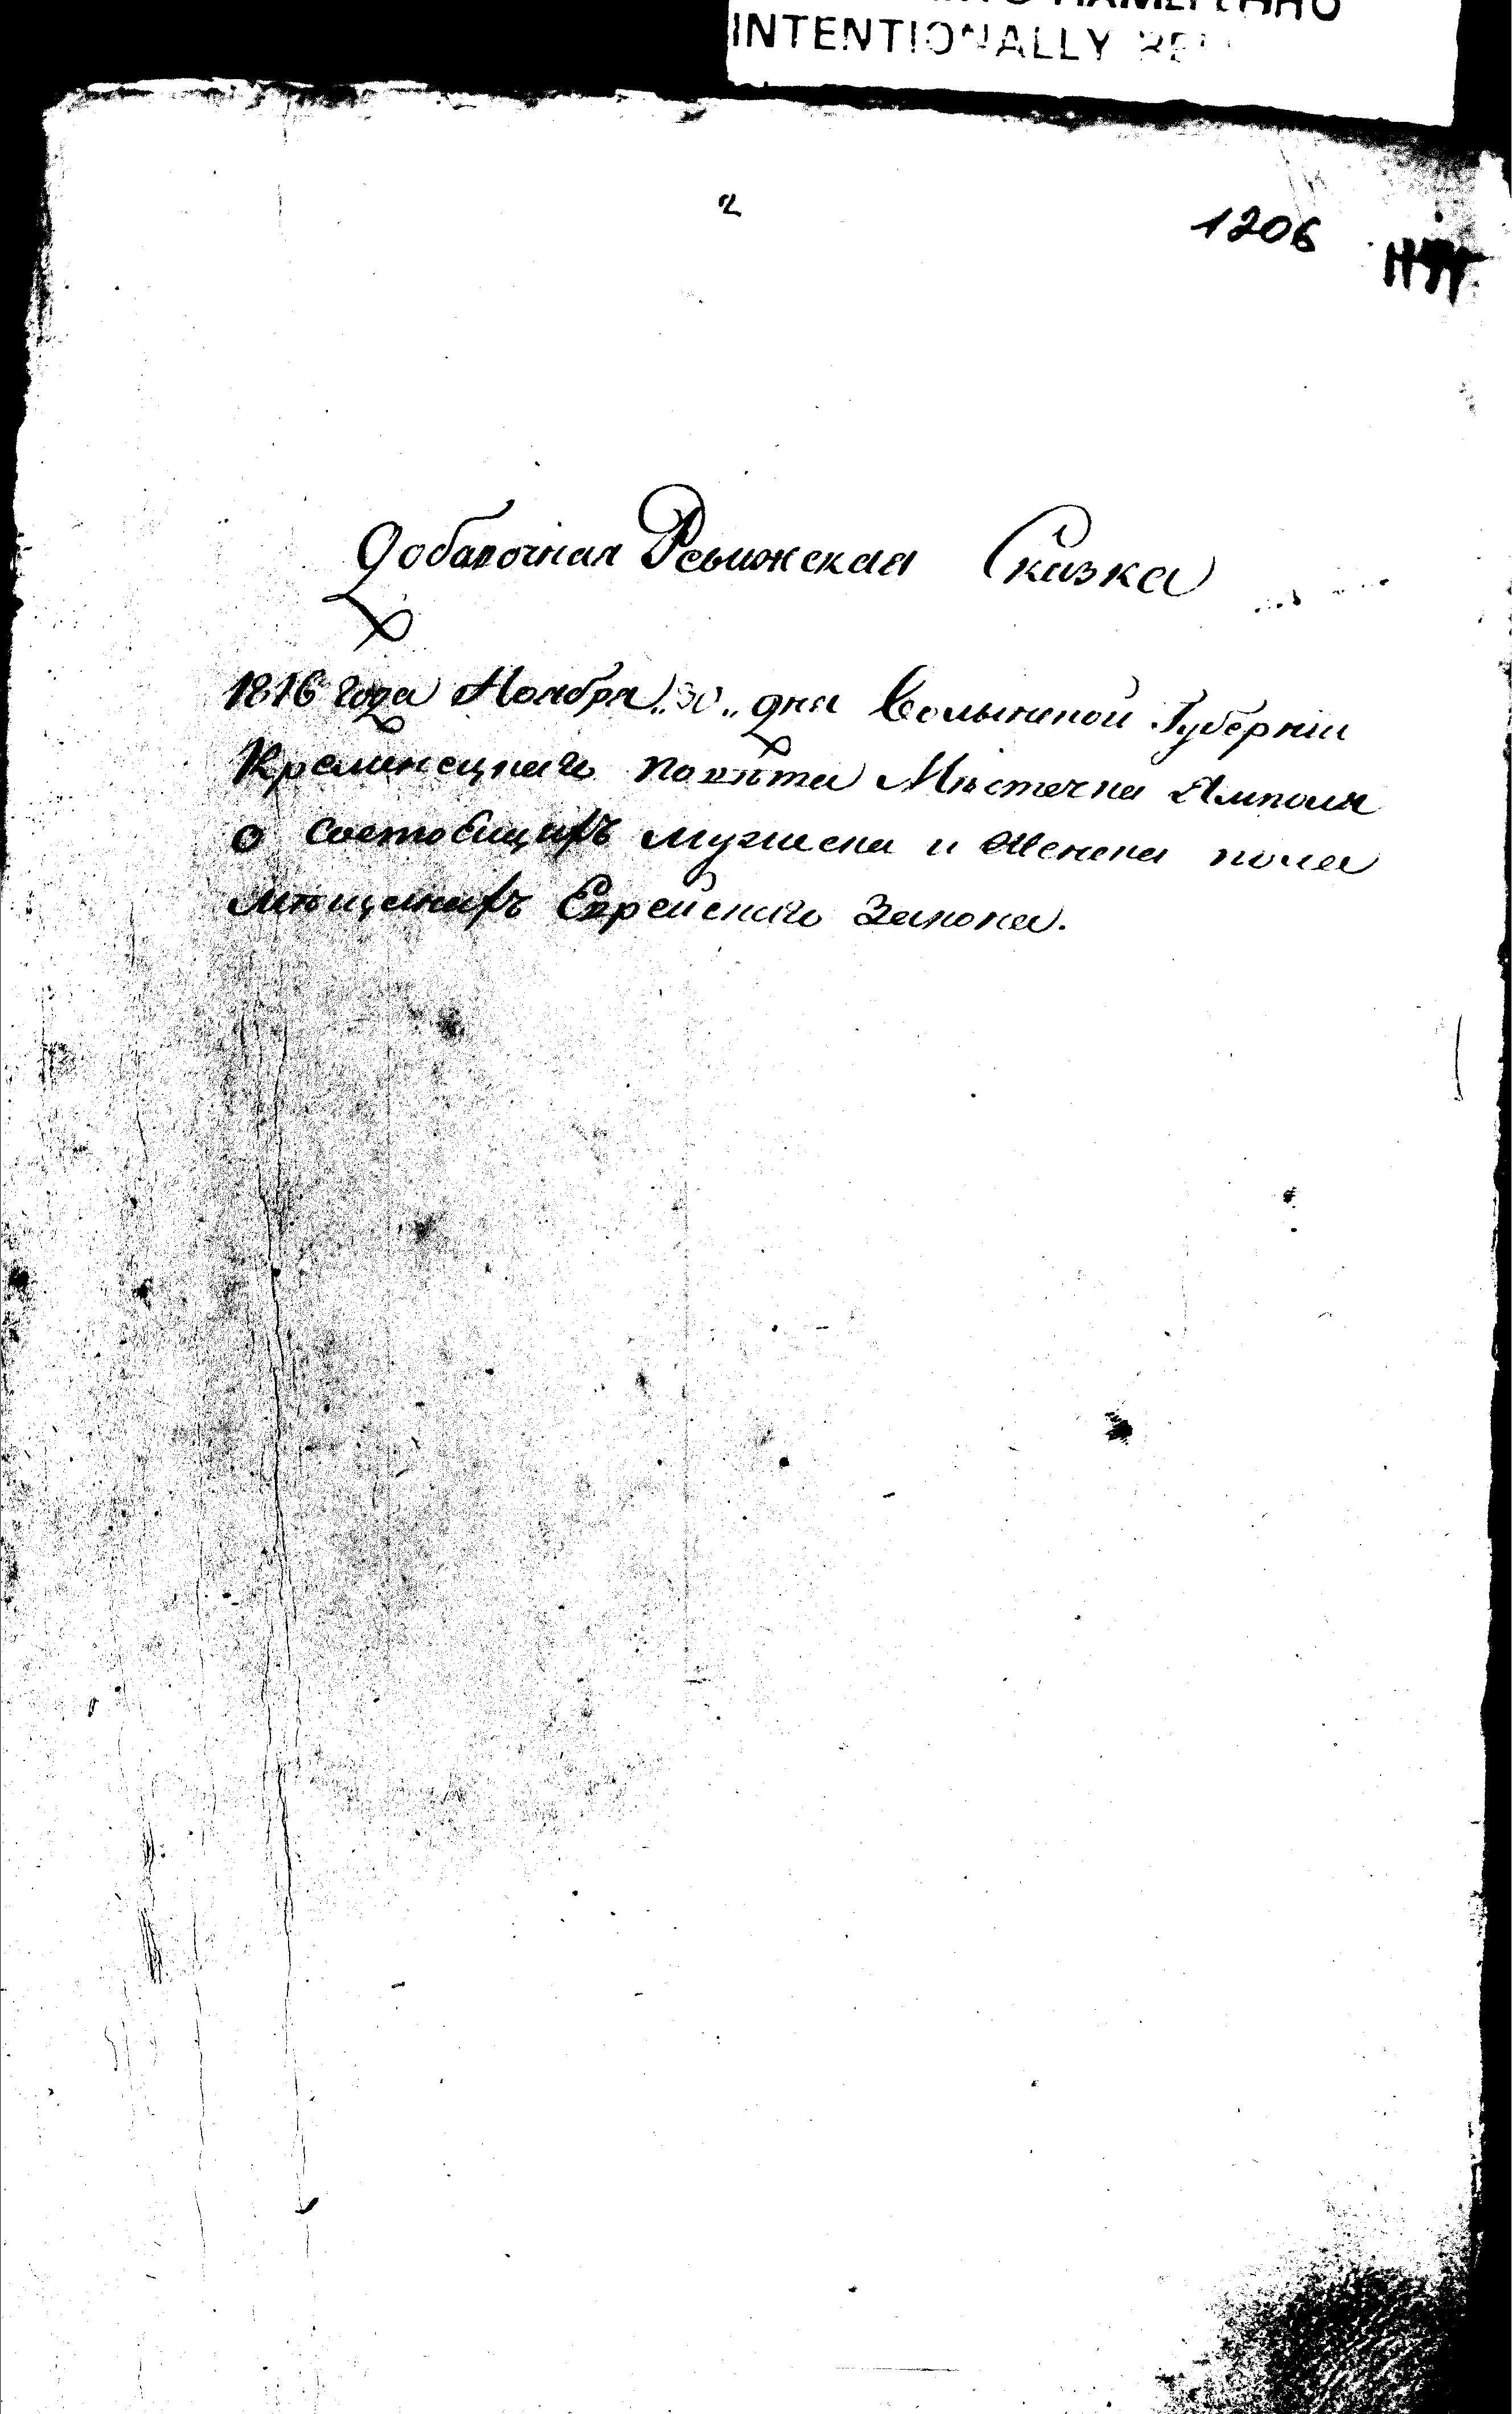 INTENTIONALLY
2
1206
Добавочная Ревижская Сказка
1816 года Ноября „30„ дня Волынской Губерніи
Кременецкаго повѣта Мѣстечка Ямполя
о состоящихъ мужеска и женска пола
мѣщанахъ Еврейскаго Закона.